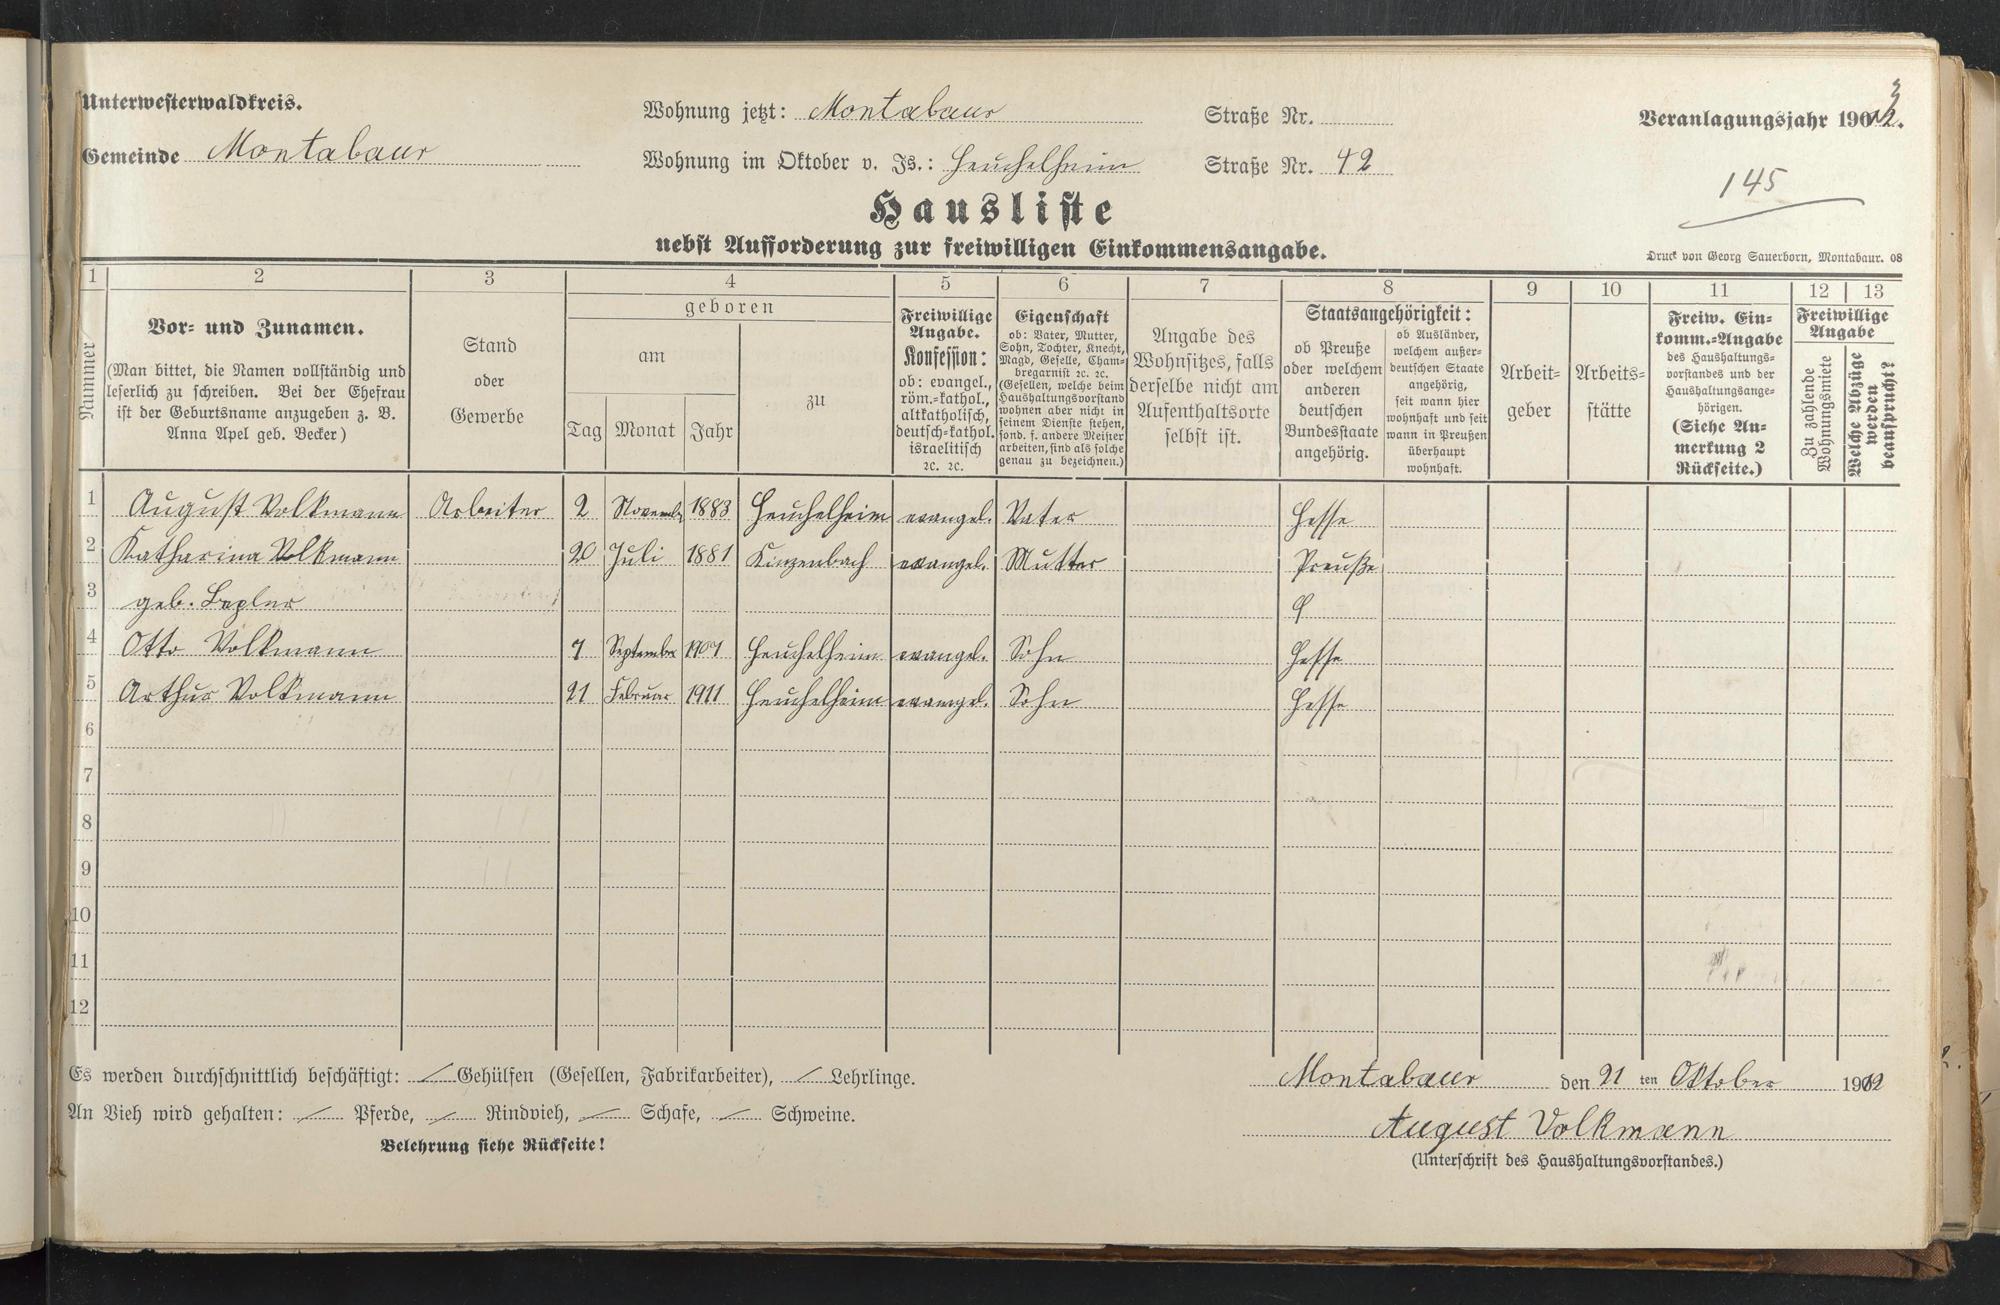 Unterwesterwaldkreis.
Gemeinde Montabaur
Wohnung jetzt: Montabaur Straße Nr.
Wohnung im Oktober v. Js.: Heuchelheim Straße Nr. 42
Veranlagungsjahr 1912.
3
145
Hausliste
nebst Aufforderung zur freiwilligen Einkommensangabe.
Druck von Georg Sauerborn, Montabaur. 08
1 2 3 4 5 6 7 8 9 10 11 12 13
Nummer
Vor- und Zunamen.
(Man bittet, die Namen vollständig und
leserlich zu schreiben. Bei der Ehefrau
ist der Geburtsname anzugeben z. B.
Anna Apel geb. Becker)
Stand
oder
Gewerbe
geboren
am
Tag Monat Jahr
zu
Freiwillige
Angabe.
Konfession:
ob: evangel.,
röm.-kathol.,
altkatholisch,
deutsch-kathol.
israelitisch
ꝛc. ꝛc.
Eigenschaft
ob: Vater, Mutter,
Sohn, Tochter, Knecht,
Magd, Geselle, Cham-
bregarnist ꝛc. ꝛc.
(Gesellen, welche beim
Haushaltungsvorstand
wohnen aber nicht in
seinem Dienste stehen,
sond. f. andere Meister
arbeiten, sind als solche
genau zu bezeichnen.)
Angabe des
Wohnsitzes, falls
derselbe nicht am
Aufenthaltsorte
selbst ist.
Staatsangehörigkeit:
ob Preuße
oder welchem
anderen
deutschen
Bundesstaate
angehörig.
ob Ausländer,
welchem außer-
deutschen Staate
angehörig,
seit wann hier
wohnhaft und seit
wann in Preußen
überhaupt
wohnhaft.
Arbeit-
geber
Arbeits-
stätte
Freiw. Ein-
komm.-Angabe
des Haushaltungs-
vorstandes und der
Haushaltungsange-
hörigen.
(Siehe An-
merkung 2
Rückseite.)
Freiwillige
Angabe
Zu zahlende
Wohnungsmiete
Welche Abzüge
werden
beansprucht?
1 August Volkmann Arbeiter 2 Novemb. 1883 Heuchelheim evangel. Vater Hesse
2 Katharina Volkmann 20 Juli 1881 Kinzenbach evangel. Mutter Preuße
3 geb. Bepler
4 Otto Volkmann 7 September 1907 Heuchelheim evangel. Sohn Hesse
5 Arthur Volkmann 21 Februar 1911 Heuchelheim evangel. Sohn Hesse
6
7
8
9
10
11
12
Es werden durchschnittlich beschäftigt: Gehülfen (Gesellen, Fabrikarbeiter), Lehrlinge.
An Vieh wird gehalten: Pferde, Rindvieh, Schafe, Schweine.
Belehrung siehe Rückseite!
Montabaur den 21 ten Oktober 1912
August Volkmann
(Unterschrift des Haushaltungsvorstandes.)